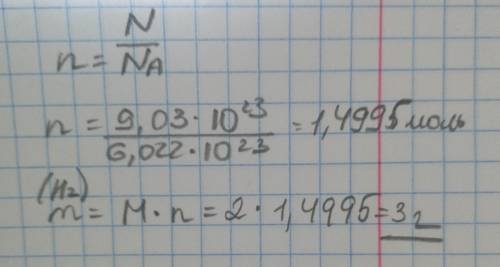 n = N/N_A
n = 9,03 · 10^23 / 6,022 · 10^23 = 1,4995 моль
(H₂)
m = M · n = 2 · 1,4995 = 3 г